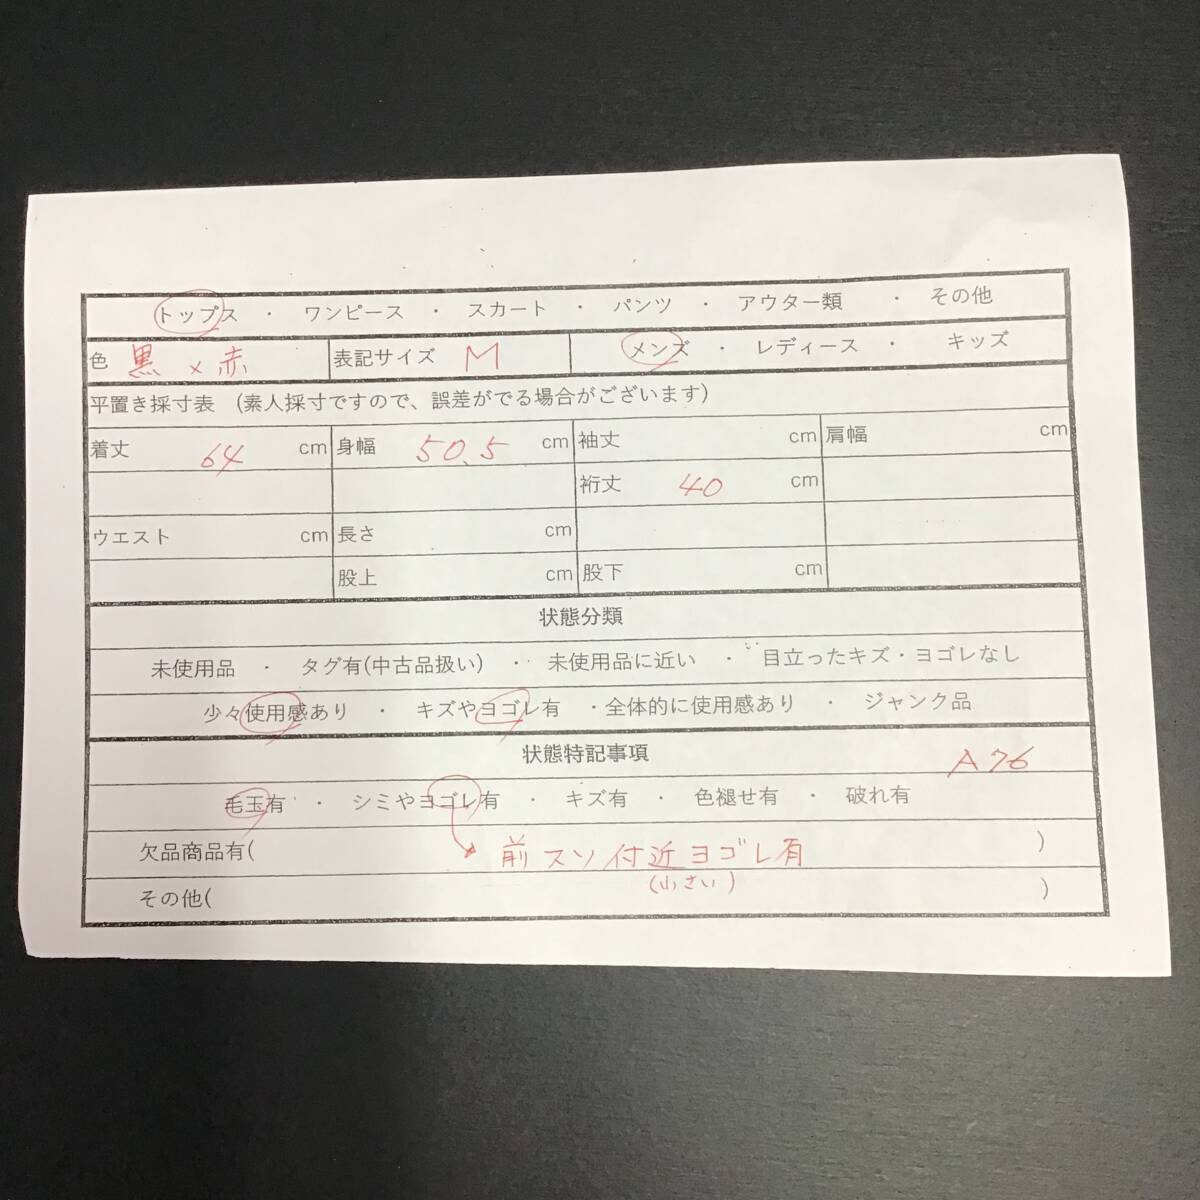 トップス ・ ワンピース ・ スカート ・ パンツ ・ アウター類 ・ その他
色 黒×赤 表記サイズ M メンズ ・ レディース ・ キッズ
平置き採寸表 (素人採寸ですので、誤差がでる場合がございます)
着丈 64 cm 身幅 50.5 cm 袖丈 cm 肩幅 cm
裄丈 40 cm
ウエスト cm 長さ cm
股上 cm 股下 cm
状態分類
未使用品 ・ タグ有(中古品扱い) ・ 未使用品に近い ・ 目立ったキズ・ヨゴレなし
少々使用感あり ・ キズやヨゴレ有 ・全体的に使用感あり ・ ジャンク品
状態特記事項 A76
毛玉有 ・ シミやヨゴレ有 ・ キズ有 ・ 色褪せ有 ・ 破れ有
欠品商品有( 前スソ付近ヨゴレ有 )
(小さい)
その他( )